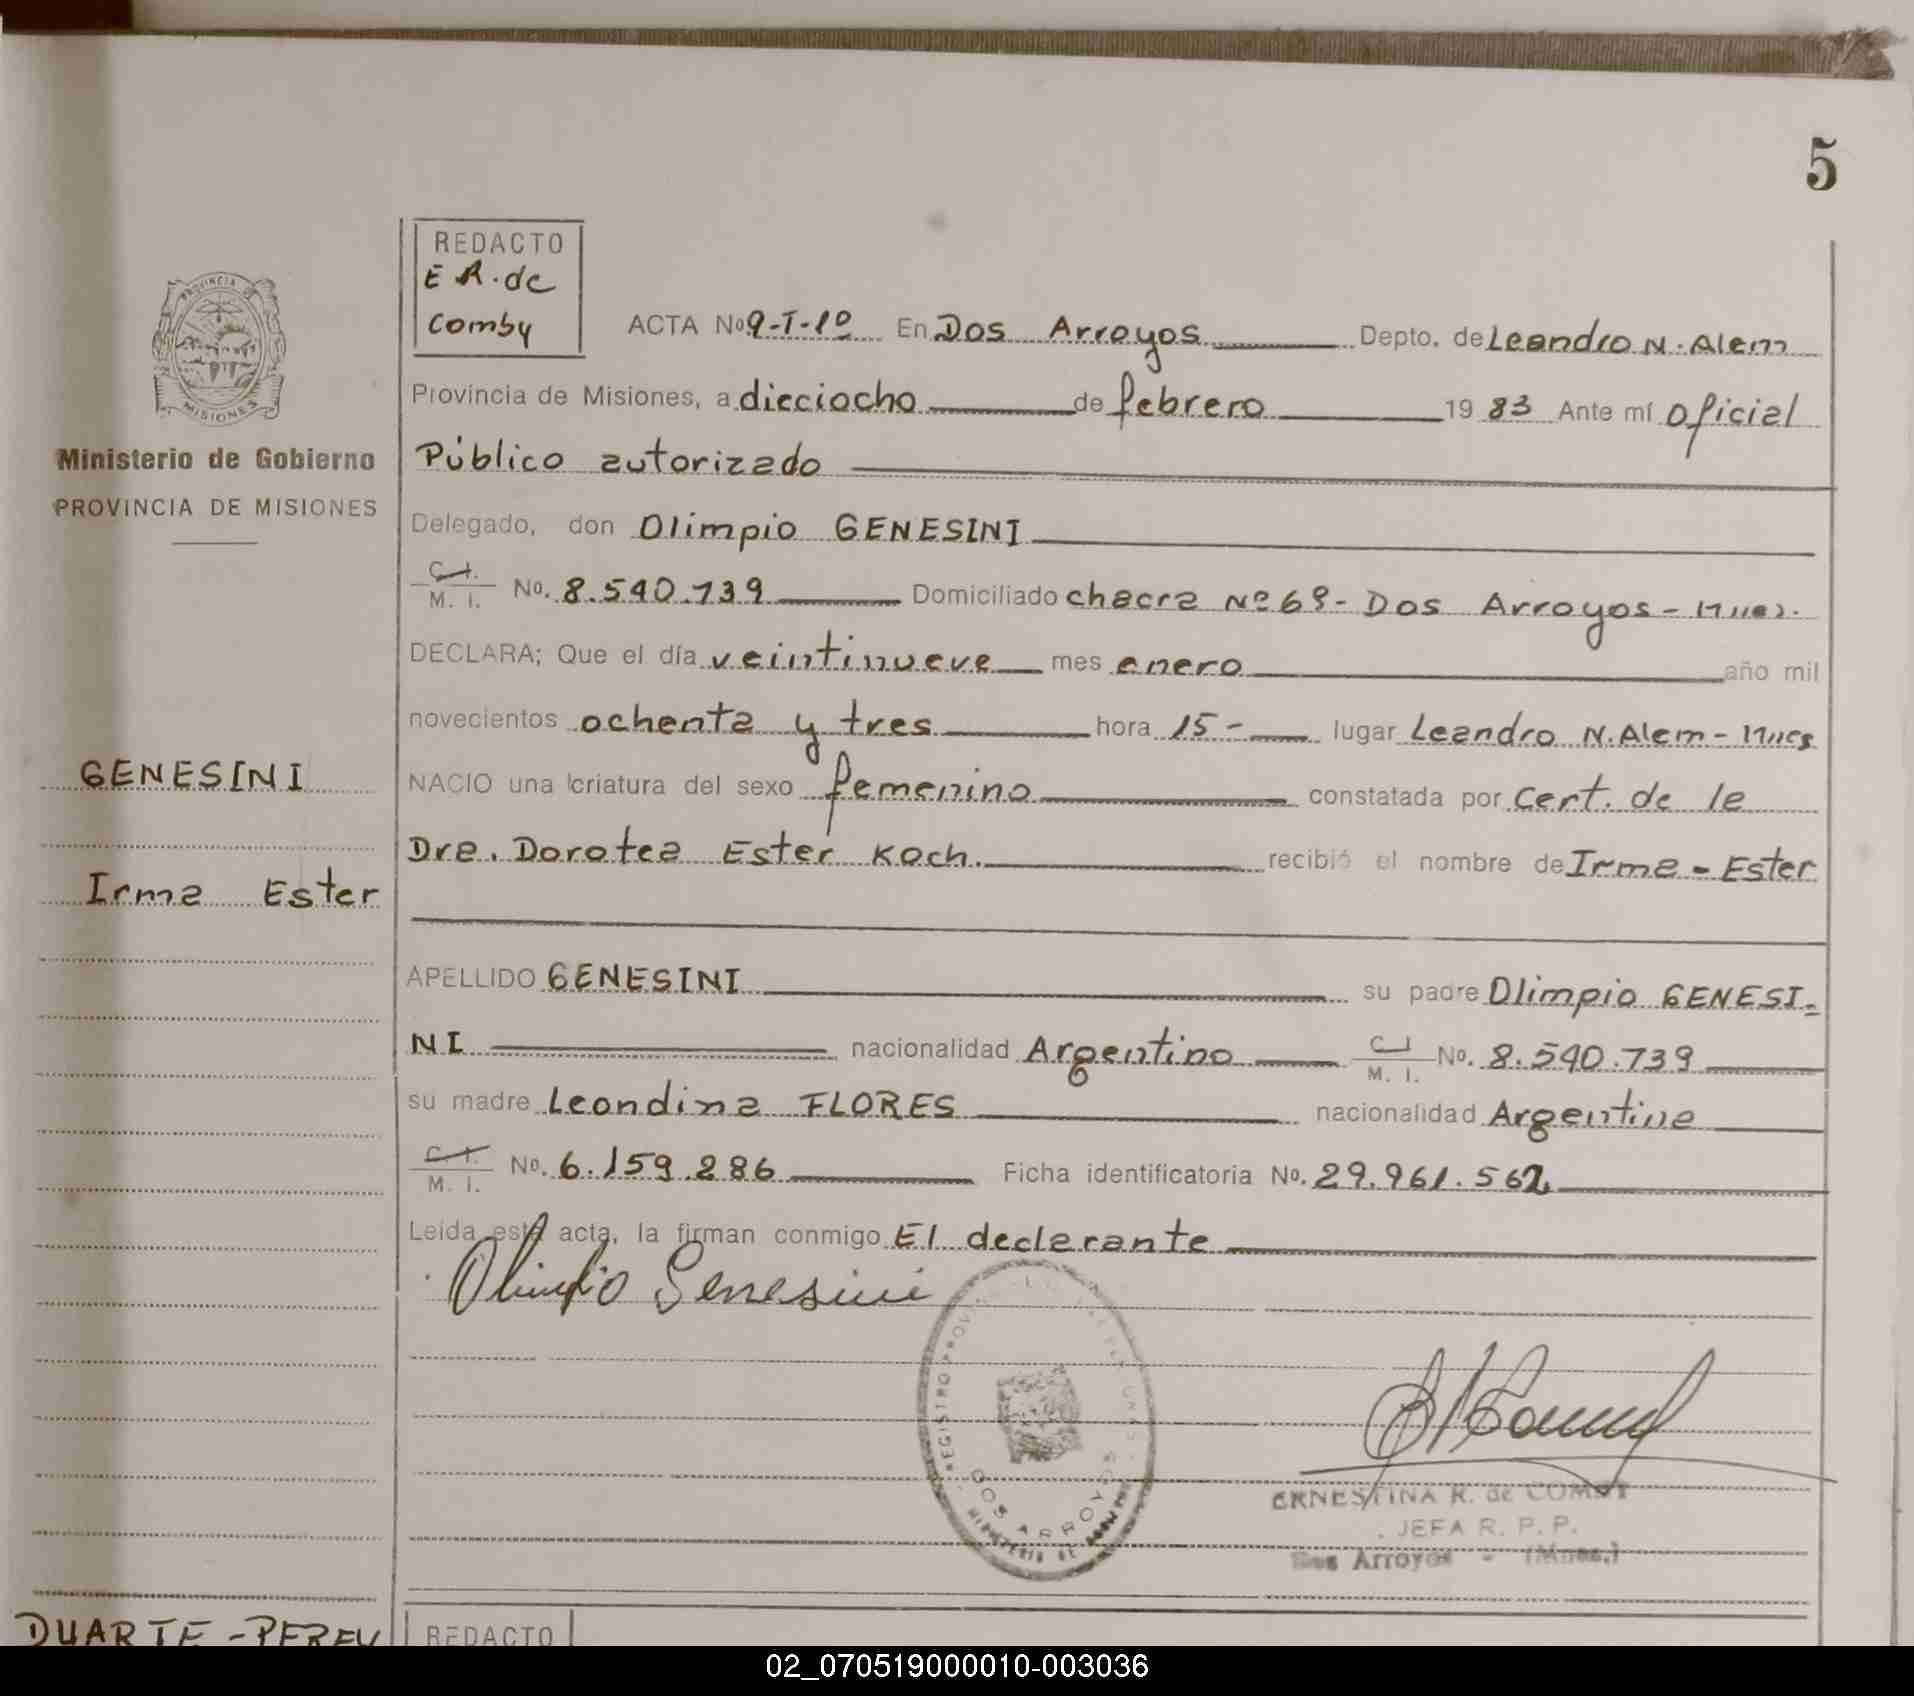 5
REDACTO
E R. de
Comby
ACTA No 9-T-1º En Dos Arroyos Depto. de Leandro N. Alem
Provincia de Misiones, a dieciocho de febrero 19 83 Ante mí oficial
Público autorizado
Delegado, don Olimpio GENESINI
C. I.
M. I. No. 8.540.739 Domiciliado chacra Nº 69- Dos Arroyos - Mnes.
DECLARA; Que el día veintinueve mes enero año mil
novecientos ochenta y tres hora 15- lugar Leandro N. Alem - Mnes
NACIO una criatura del sexo femenino constatada por Cert. de la
Dra. Dorotea Ester Koch. recibió el nombre de Irma - Ester
APELLIDO GENESINI su padre Olimpio GENESI-
NI nacionalidad Argentino C I
M. I. No. 8.540.739
su madre Leondina FLORES nacionalidad Argentina
C. I.
M. I. No. 6.159.286 Ficha identificatoria No. 29.961.562
Leída esta acta, la firman conmigo El declarante
Olimpio Genesini
REGISTRO PROVINCIAL DE LAS PERSONAS
DOS ARROYOS
MINISTERIO DE GOBIERNO
ERNESTINA R. de COMBY
JEFA R. P. P.
Dos Arroyos - (Mnes.)
PROVINCIA DE
MISIONES
Ministerio de Gobierno
PROVINCIA DE MISIONES
GENESINI
Irma Ester
DUARTE - PEREY
REDACTO
02_070519000010-003036